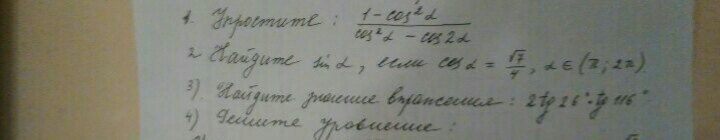 1. Упростите : (1 - cos²α)/(cos²α - cos2α)
2 Найдите sin α, если cos α = √7/4, α ∈ (π; 2π)
3). Найдите значение выражения : 2 tg 26° · tg 116°
4) Решите уравнение :